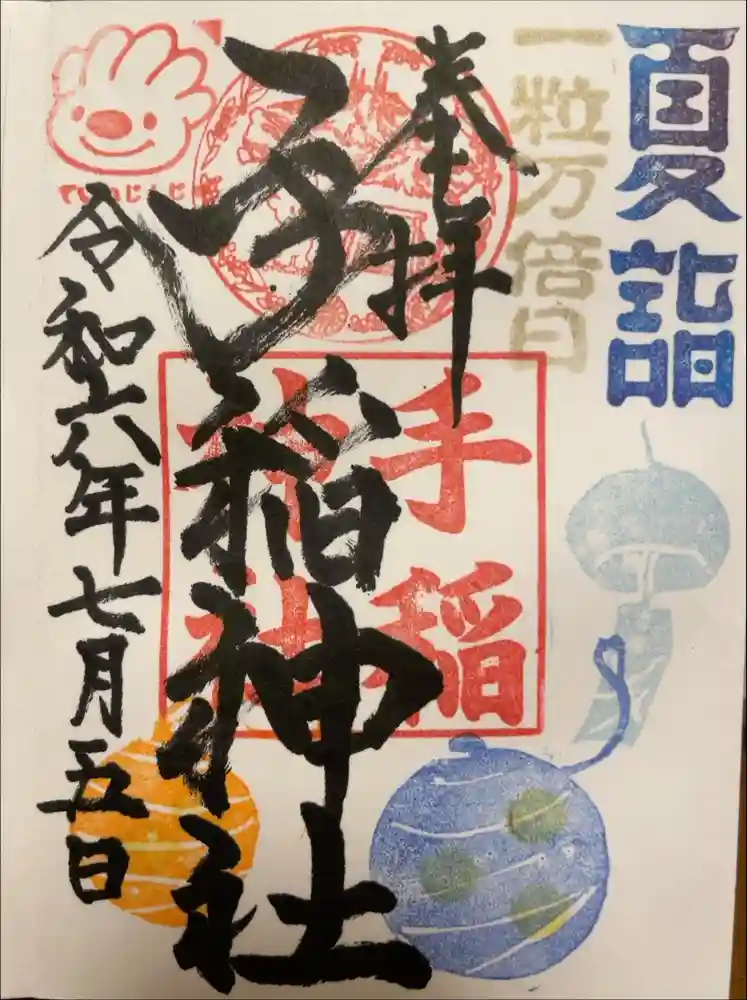 夏詣
一粒万倍日
奉拝
手稲神社
手稲
神社
ていねじんじゃ
令和六年七月五日